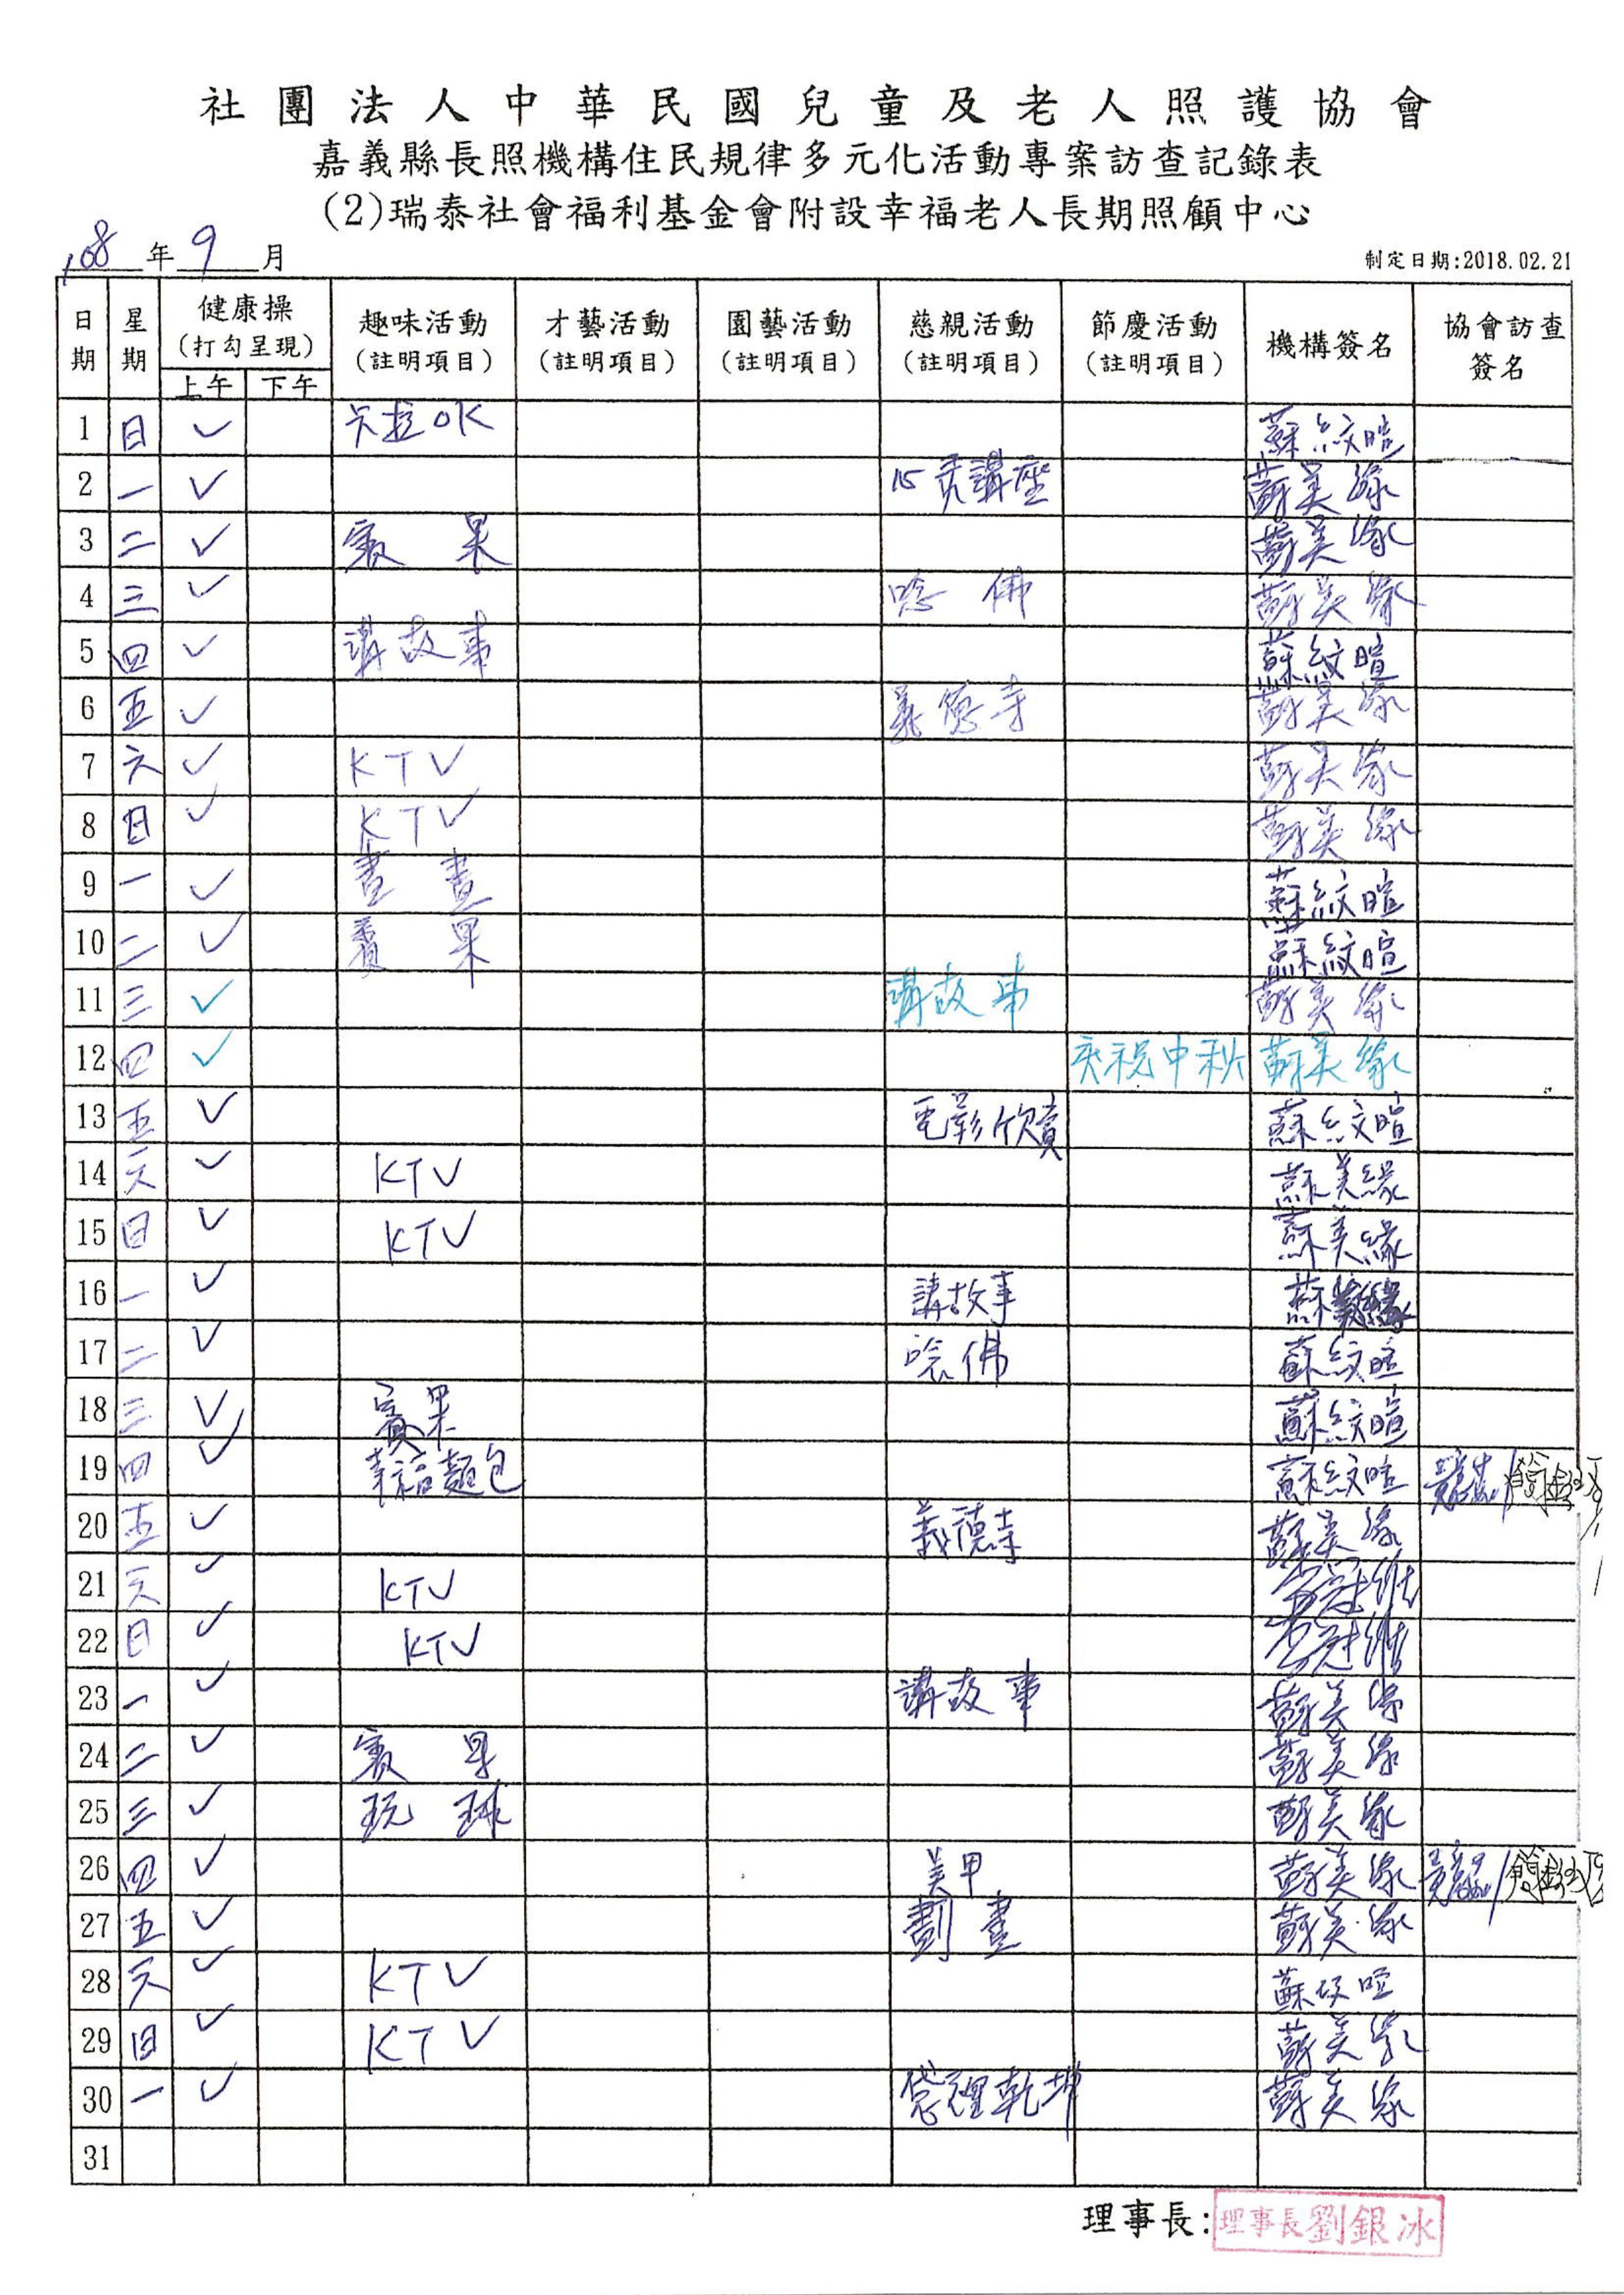 社團法人中華民國兒童及老人照護協會
嘉義縣長照機構住民規律多元化活動專案訪查記錄表
(2)瑞泰社會福利基金會附設幸福老人長期照顧中心
108 年 9 月 制定日期:2018.02.21
日期 星期 健康操 (打勾呈現) 上午 下午 趣味活動 (註明項目) 才藝活動 (註明項目) 園藝活動 (註明項目) 慈親活動 (註明項目) 節慶活動 (註明項目) 機構簽名 協會訪查簽名
1 日 ✓ 卡拉OK 蘇紋暄
2 一 ✓ 講座 蘇美緣
3 二 ✓ 賓果 蘇美緣
4 三 ✓ 唸佛 蘇美緣
5 四 ✓ 講故事 蘇紋暄
6 五 ✓ 義德寺 蘇美緣
7 六 ✓ KTV 蘇美緣
8 日 ✓ KTV 蘇美緣
9 一 ✓ 畫畫 蘇紋暄
10 二 ✓ 賓果 蘇紋暄
11 三 ✓ 講故事 蘇美緣
12 四 ✓ 慶祝中秋 蘇美緣
13 五 ✓ 電影欣賞 蘇紋暄
14 六 ✓ KTV 蘇美緣
15 日 ✓ KTV 蘇美緣
16 一 ✓ 講故事 蘇
17 二 ✓ 唸佛 蘇紋暄
18 三 ✓ 賓果 蘇紋暄
19 四 ✓ 幸福麵包 蘇紋暄
20 五 ✓ 義德寺 蘇美緣
21 六 ✓ KTV
22 日 ✓ KTV
23 一 ✓ 講故事 蘇美緣
24 二 ✓ 賓果 蘇美緣
25 三 ✓ 玩球 蘇美緣
26 四 ✓ 美甲 蘇美緣
27 五 ✓ 劃畫 蘇美緣
28 六 ✓ KTV 蘇紋暄
29 日 ✓ KTV 蘇美緣
30 一 ✓ 袋理乾坤 蘇美緣
31
理事長: 理事長劉銀冰